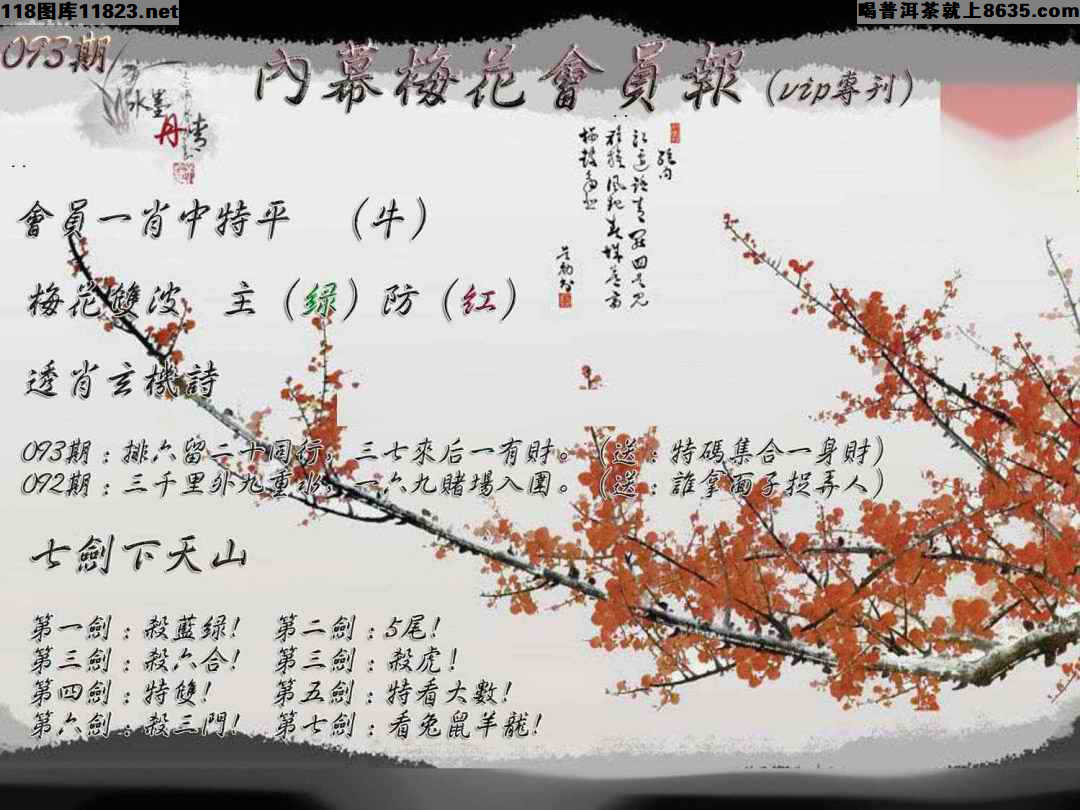 118图库11823.net
喝普洱茶就上8635.com
093期
水墨
丹青
內幕梅花會員報(vip專刊)
會員一肖中特平 (牛)
梅花雙波 主(绿)防(红)
透肖玄機詩
093期:排六留二十同行,三七來后一有財。(送:特碼集合一身財)
092期:三千里外九重水,一六九賭場入圍。(送:誰拿面子捉弄人)
七劍下天山
第一劍:殺藍绿! 第二劍:5尾!
第三劍:殺六合! 第三劍:殺虎!
第四劍:特雙! 第五劍:特看大數!
第六劍:殺三門! 第七劍:看兔鼠羊龍!